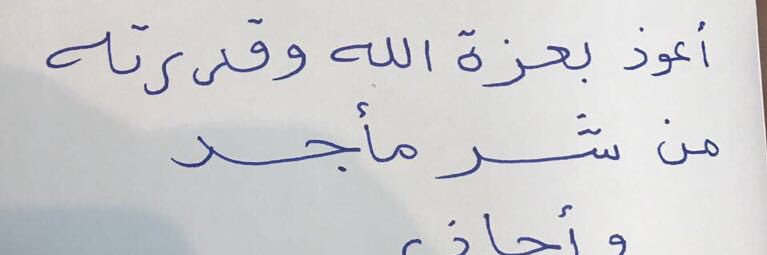 أعوذ بعزة الله وقدرته
من شر مأجد
وأحاذر